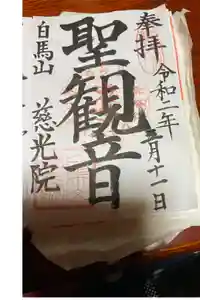 奉拝
令和二年三月十一日
聖観音
白馬山
慈光院